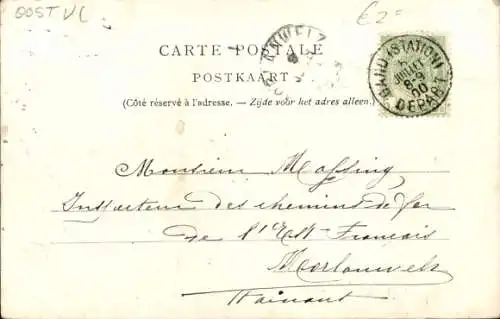 OOST VL
€2=
CARTE POSTALE
POSTKAART
(Côté réservé à l'adresse. — Zijde voor het adres alleen.)
GAND (STATION)
JUILLET
8-9
00
DEPART
Monsieur Massing
Inspecteur des chemins de fer
de l'Est-Français
Morlanwelz
Hainaut